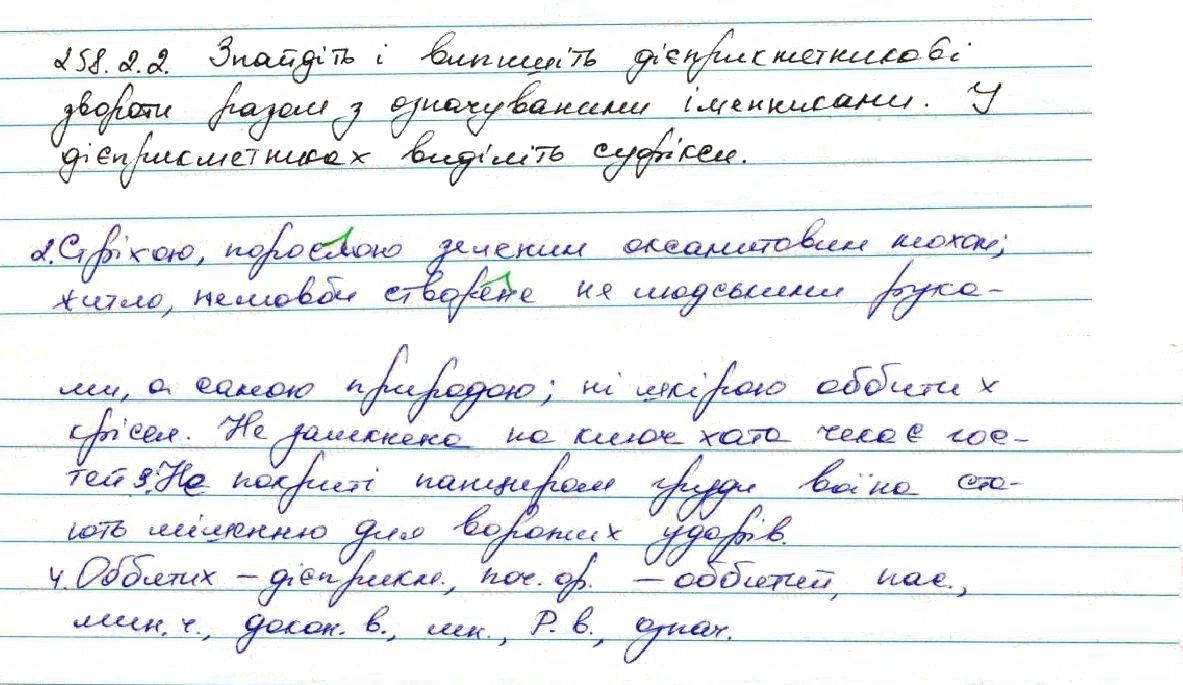 258.2.2. Знайдіть і випишіть дієприкметникові
звороти разом з означуваними іменниками. У
дієприкметниках виділіть суфікси.
2. Стріхою, порослою зеленим оксамитовим мохом;
житло, немовби створене не людськими рука-
ми, а самою природою; ні шкірою оббитих
крісел. Не замкнена на ключ хата чекає гос-
тей 3. Не покриті панциром груди воїна ста-
ють мішенню для ворожих ударів.
4. Оббитих – дієприкм., поч. ф. – оббитий, пас.,
мин. ч., докон. в., мн., Р. в., означ.